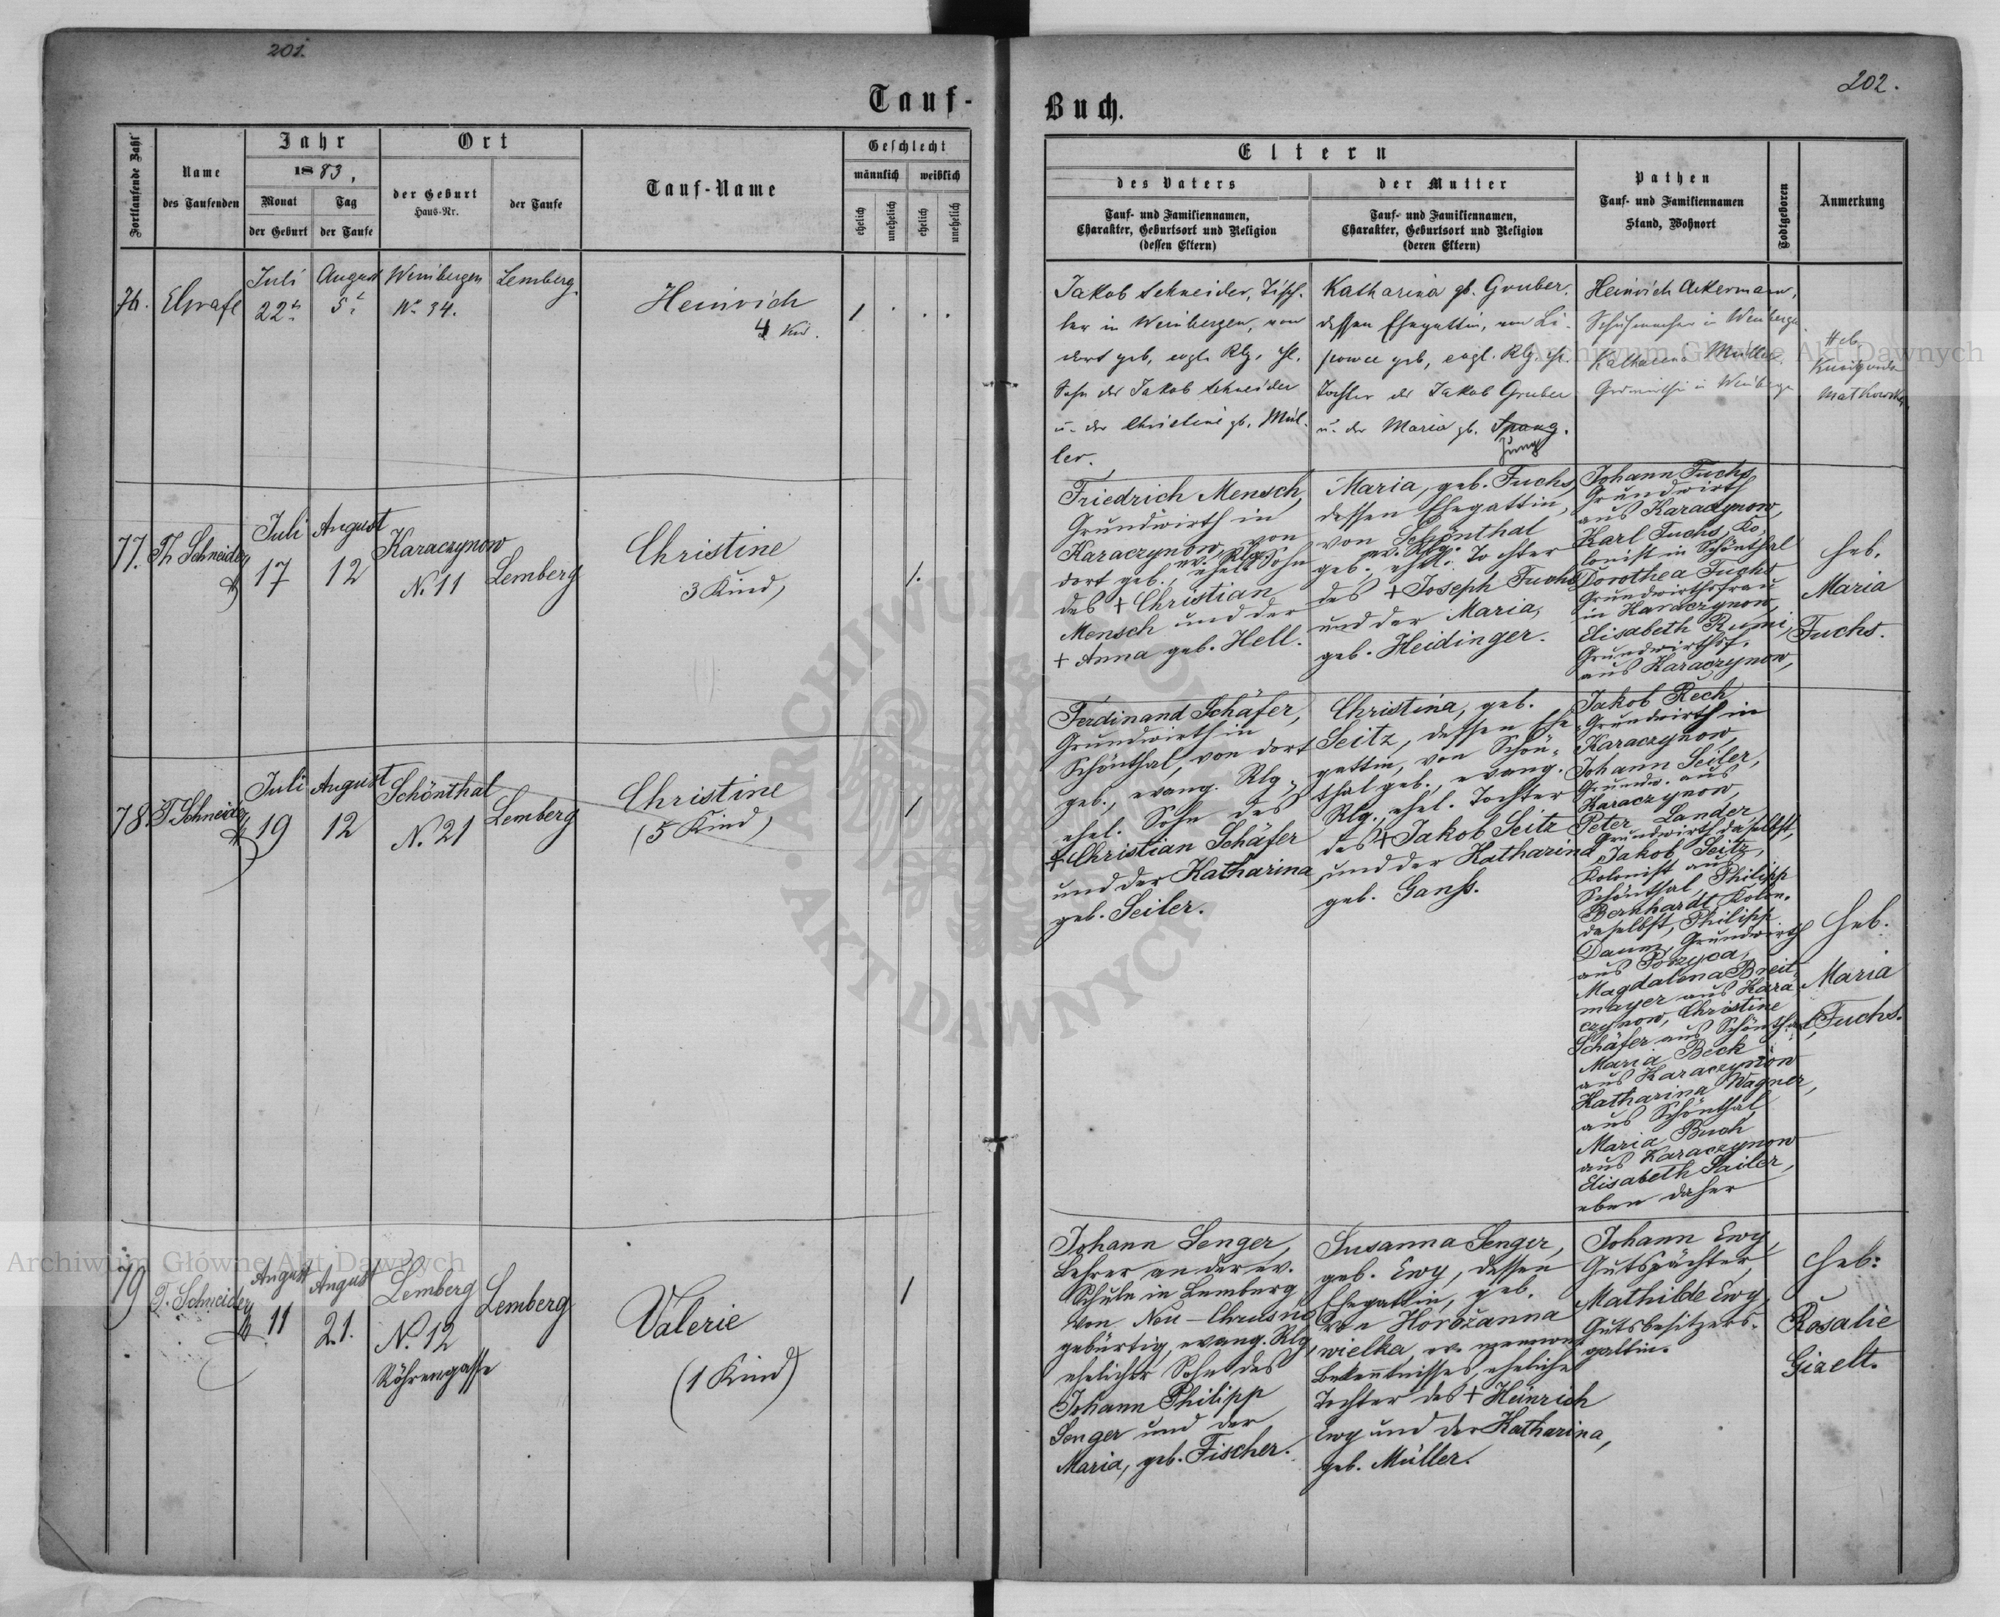 201.
Tauf-
Fortlaufende Zahl
Name
des Taufenden
Jahr
1883.
Monat
der Geburt
Tag
der Taufe
Ort
der Geburt
Haus-Nr.
der Taufe
Tauf-Name
Geschlecht
männlich
weiblich
ehelich
unehelich
ehelich
unehelich
76.
Elgrafe
Juli
22
August
5
Weinbergen
No 34.
Lemberg
Heinrich
4 Kind.
1
77.
Th Schneider
Juli
17
August
12
Karaczynow
N. 11
Lemberg
Christine
3 Kind,
1.
78.
T. Schneider
Juli
19
August
12
Schönthal
N. 21
Lemberg
Christine
(5 Kind)
1
79
T. Schneider
August
11
August
21.
Lemberg
N. 12
Röhrengasse
Lemberg
Valerie
(1 Kind)
1
202.
Buch.
Eltern
des Vaters
Tauf- und Familiennamen,
Charakter, Geburtsort und Religion
(dessen Eltern)
der Mutter
Tauf- und Familiennamen,
Charakter, Geburtsort und Religion
(deren Eltern)
Pathen
Tauf- und Familiennamen
Stand, Wohnort
Todtgeboren
Anmerkung
Jakob Schneider, Tisch-
ler in Weinbergen, von
dort geb, evgl. Rlg. ehl.
Sohn der Jakob Schneider
u. der Christine gb. Mül-
ler.
Katharina gb. Gruber.
dessen Ehegattin, von
geb, evgl. Rlg. ehl.
Tochter des Jakob Gruber
u. der Maria gb. Spang.
Jung
Heinrich Ackermann,
Schuhmacher in Weinbergen.
Katharina Müller.
Grdwirthin in Weinbergen
Heb.
Kunigunda
Matkowska
Friedrich Mensch,
Grundwirth in
Karaczynow, von
dort geb., ev. Rlg. ehel. Sohn
des + Christian
Mensch und der
+ Anna geb. Hell.
Maria, geb. Fuchs,
dessen Ehegattin,
von Schönthal
geb., ev. Rlg. ehel. Tochter
des + Joseph Fuchs
und der Maria,
geb. Heidinger.
Johann Fuchs,
Grundwirth
aus Karaczynow,
Karl Fuchs, Ko-
lonist in Schönthal
Dorothea Fuchs
Grundwirthsfrau
in Karaczynow,
Elisabeth Rumi,
Grundwirthsf.
aus Karaczynow,
Heb.
Maria
Fuchs.
Ferdinand Schäfer,
Grundwirth in
Schönthal, von dort
geb., evang. Rlg.,
ehel. Sohn des
+ Christian Schäfer
und der Katharina
geb. Seiler.
Christina, geb.
Seitz, dessen Ehe-
gattin, von Schön-
thal geb., evang.
Rlg., ehel. Tochter
des + Jakob Seitz
und der Katharina,
geb. Ganß.
Jakob Rech
Grundwirth in
Karaczynow,
Johann Seiler,
Grundw. aus
Karaczynow,
Peter Lander
Grundwirth daselbst,
Jakob Seitz,
Kolonist aus
Schönthal, Philipp
Bernhardt Kolon.
daselbst, Philipp
Daum, Grundwirth
aus
Magdalena Breit-
mayer aus Kara-
czynow, Christine
Schäfer aus Schönthal,
Maria Beck
aus Karaczynow
Katharina Wagner,
aus Schönthal
Maria Buch
aus Karaczynow
Elisabeth Sailer,
eben daher
Heb.
Maria
Fuchs.
Johann Senger,
Lehrer an der ev.
Schule in Lemberg
von Neu-Chrusno
gebürtig, evang. Rlg,
ehelicher Sohn des
Johann Philipp
Senger und der
Maria, geb. Fischer.
Susanna Senger,
geb. Ewy, dessen
Ehegattin, geb.
von Horožanna
wielka, ev. mennon.
Bekenntnisses, eheliche
Tochter des + Heinrich
Ewy und der Katharina,
geb. Müller.
Johann Ewy,
Gutspächter,
Mathilde Ewy,
Gutsbesitzers-
gattin.
Heb:
Rosalie
Gizelt.
Archiwum Główne Akt Dawnych
Archiwum Główne Akt Dawnych